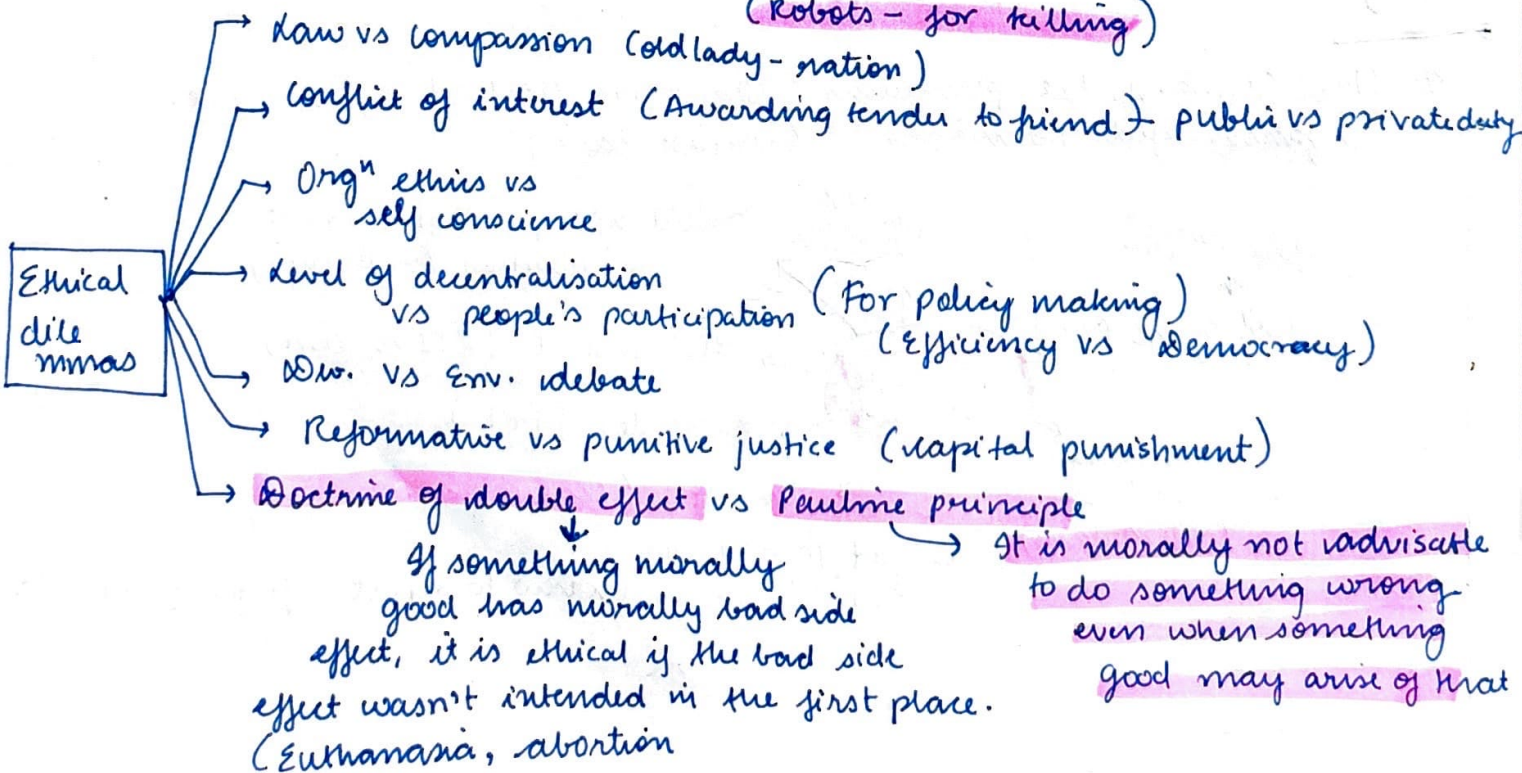 (Robots - for killing)
Law vs compassion (old lady - ration)
Conflict of interest (Awarding tender to friend) - public vs private duty
Orgⁿ ethics vs
self conscience
Level of decentralisation
vs people's participation (For policy making)
(Efficiency vs Democracy)
Ethical
dile
mmas
Dev. vs Env. debate
Reformative vs punitive justice (capital punishment)
Doctrine of double effect vs Pauline principle
If something morally
good has morally bad side
effect, it is ethical if the bad side
effect wasn't intended in the first place.
(Euthanasia, abortion
It is morally not advisable
to do something wrong
even when something
good may arise of that